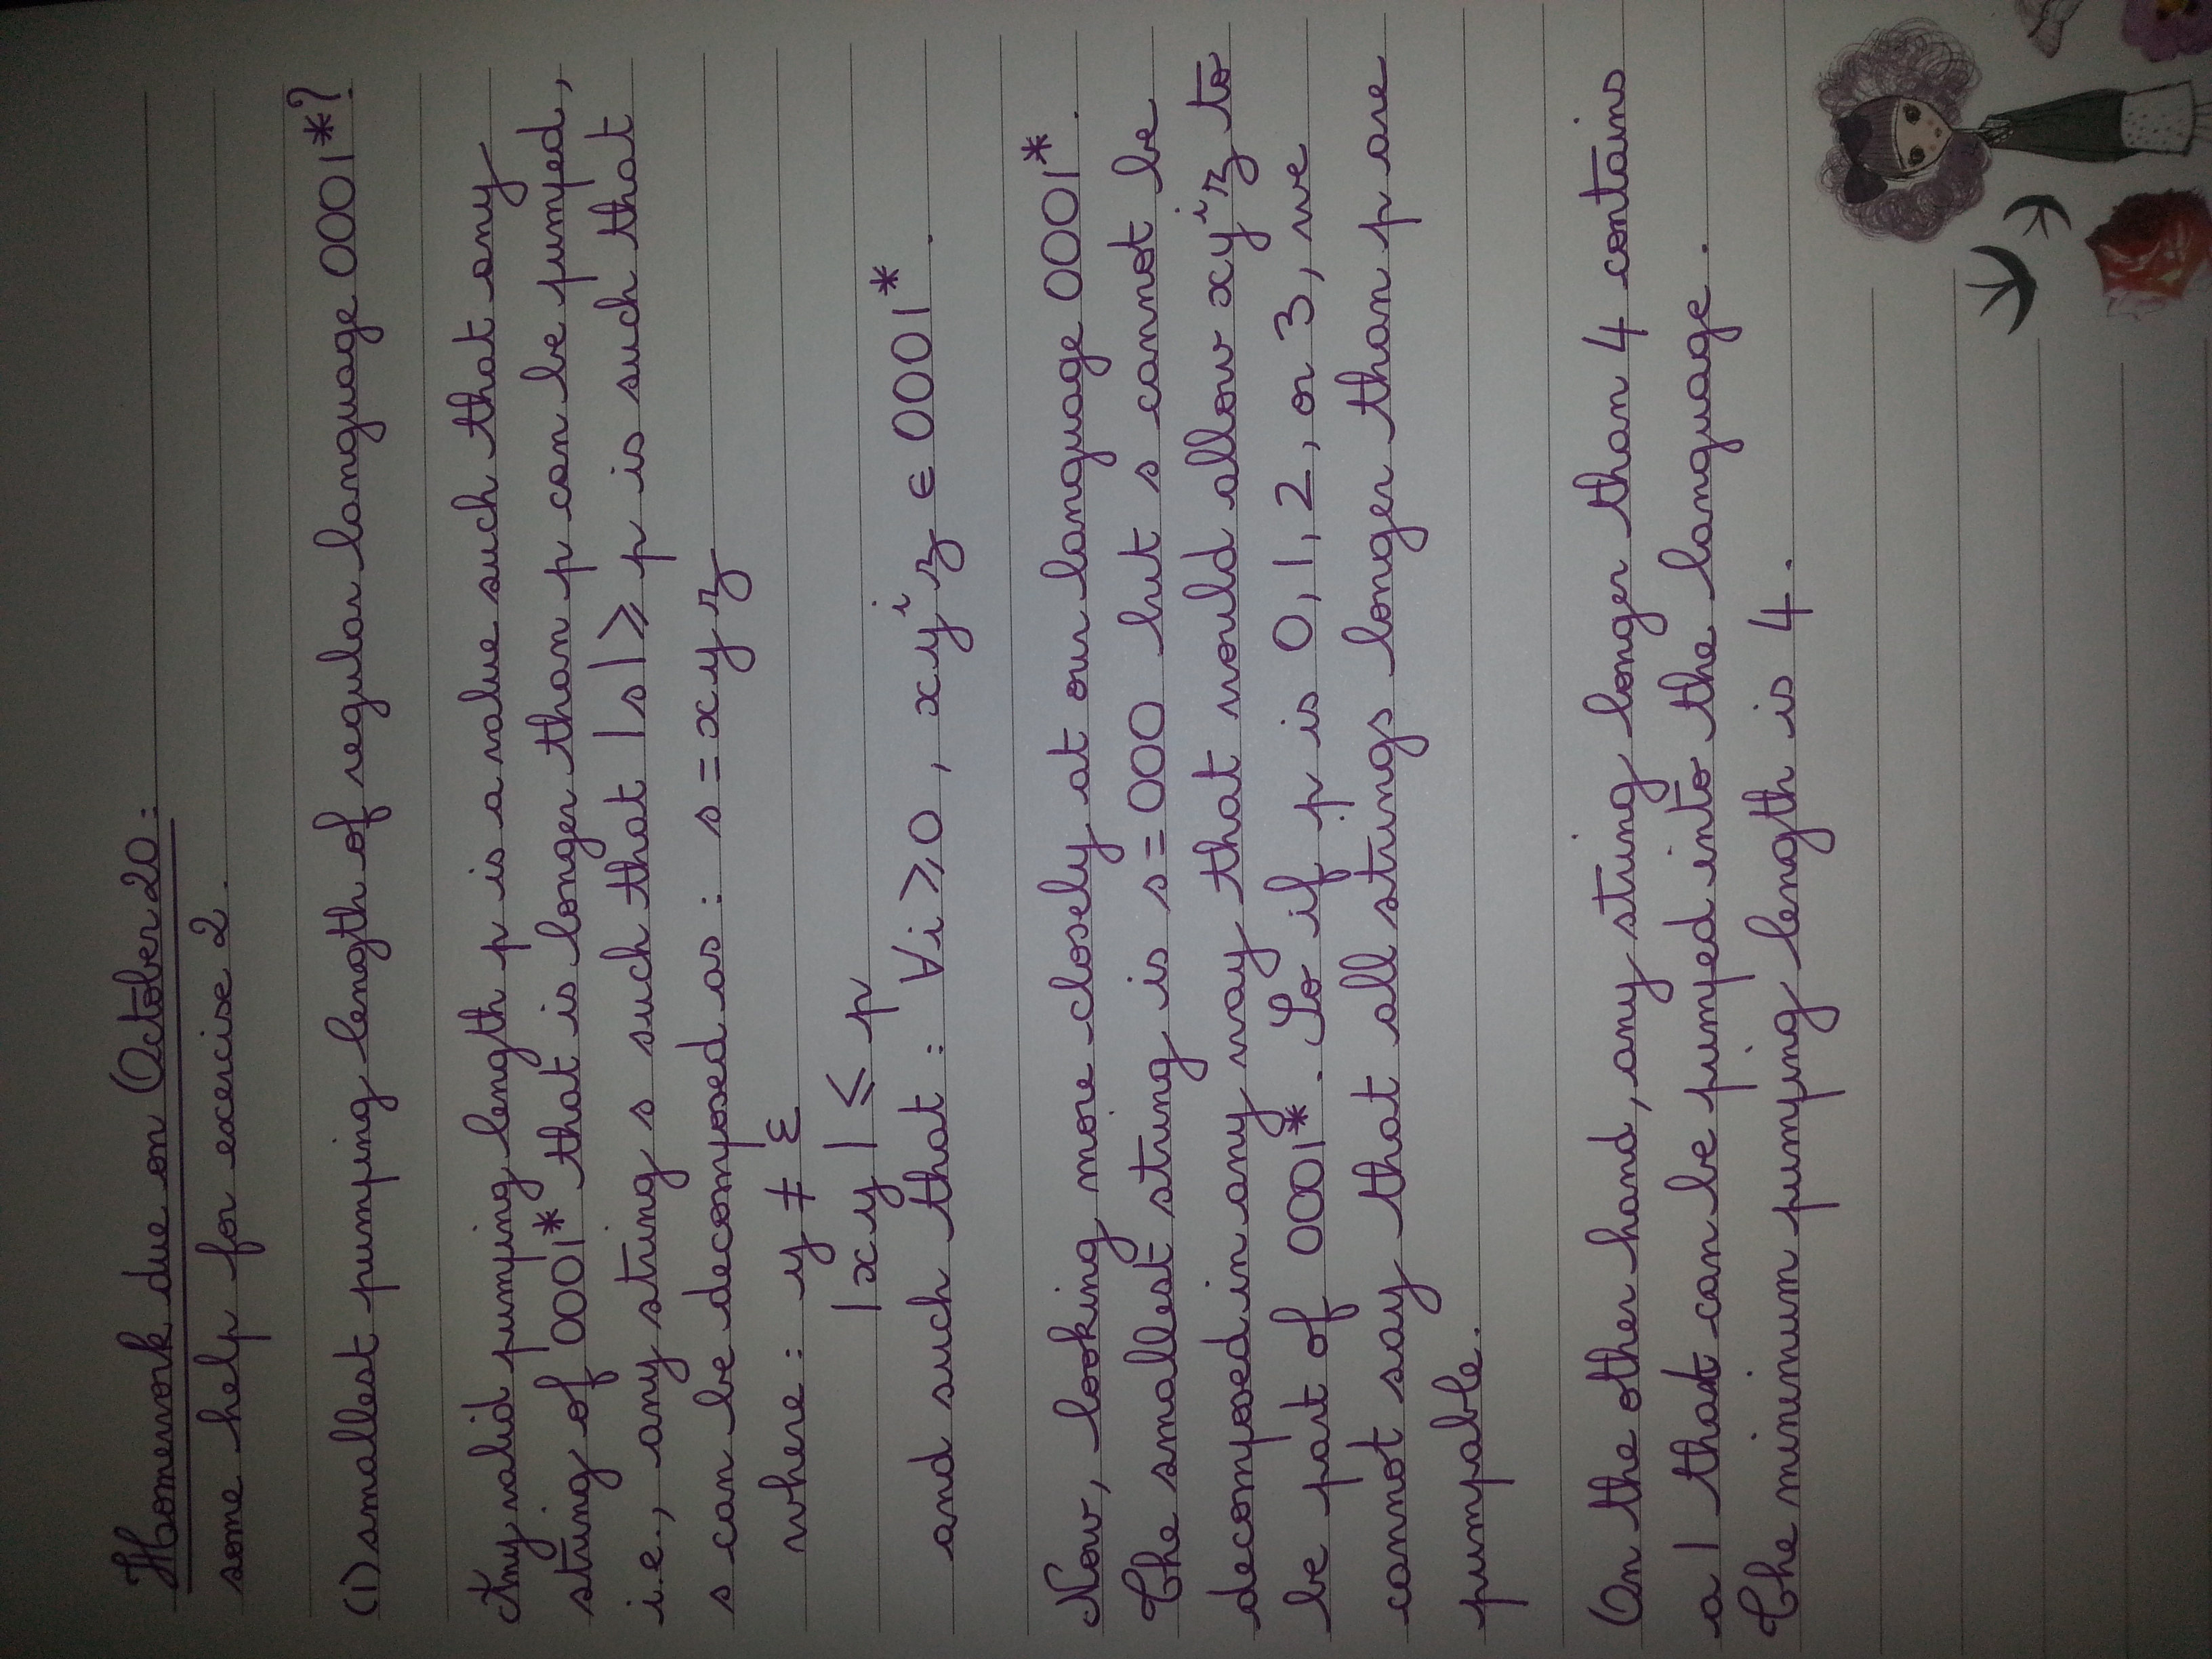 Homework due on October 20:
some help for exercise 2.
(1) smallest pumping length of regular language 0001*?
Any valid pumping length p is a value such that any
string of 0001* that is longer than p can be pumped,
i.e., any string s such that |s| ≥ p is such that
s can be decomposed as: s = xyz
where: y ≠ ε
|xy| ≤ p
and such that: ∀i ≥ 0, xyⁱz ∈ 0001*.
Now, looking more closely at our language 0001*.
The smallest string is s = 000 but s cannot be
decomposed in any way that would allow xyⁱz to
be part of 0001*. So if p is 0, 1, 2, or 3, we
cannot say that all strings longer than p are
pumpable.
On the other hand, any string longer than 4 contains
a 1 that can be pumped into the language.
The minimum pumping length is 4.